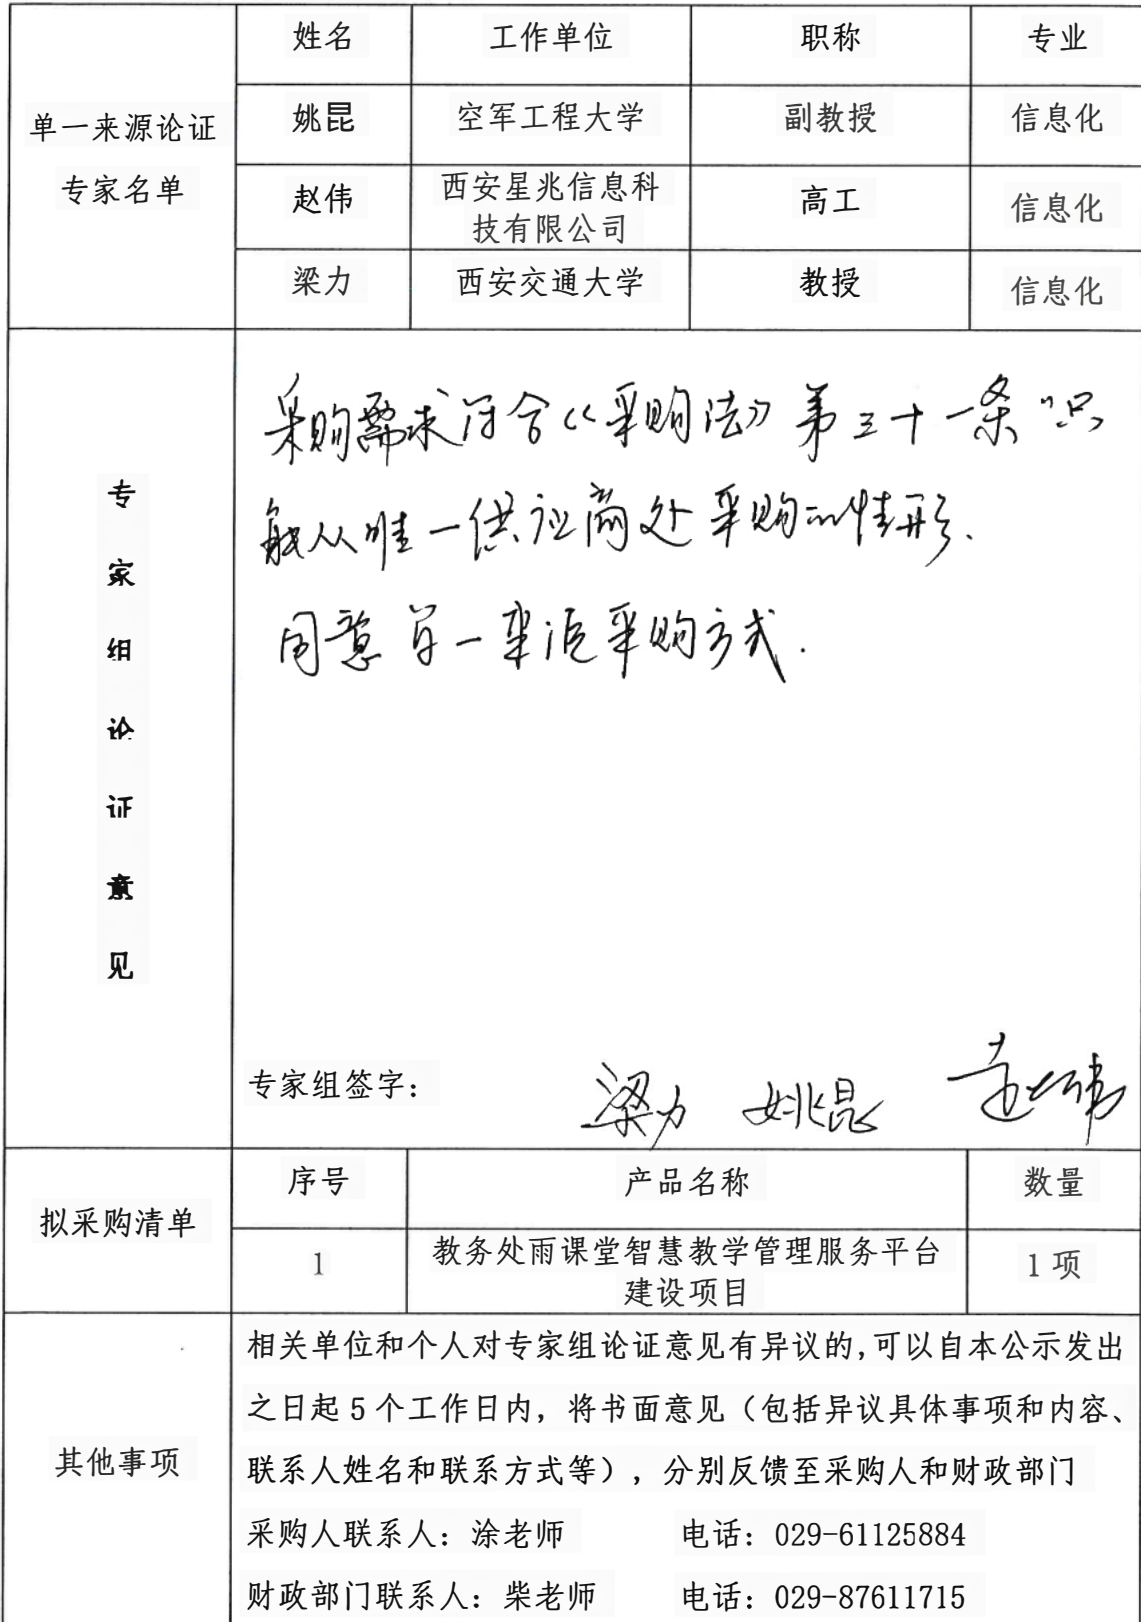 姓名 工作单位 职称 专业
单一来源论证
专家名单
姚昆 空军工程大学 副教授 信息化
赵伟 西安星兆信息科
技有限公司 高工 信息化
梁力 西安交通大学 教授 信息化
专
家
组
论
证
意
见
采购需求符合《采购法》第三十一条"只
能从唯一供应商处采购的情形.
同意单一来源采购方式.
专家组签字: 梁力 姚昆 赵伟
拟采购清单
序号 产品名称 数量
1 教务处雨课堂智慧教学管理服务平台
建设项目 1 项
其他事项
相关单位和个人对专家组论证意见有异议的,可以自本公示发出
之日起 5 个工作日内，将书面意见（包括异议具体事项和内容、
联系人姓名和联系方式等），分别反馈至采购人和财政部门
采购人联系人：涂老师 电话：029-61125884
财政部门联系人：柴老师 电话：029-87611715